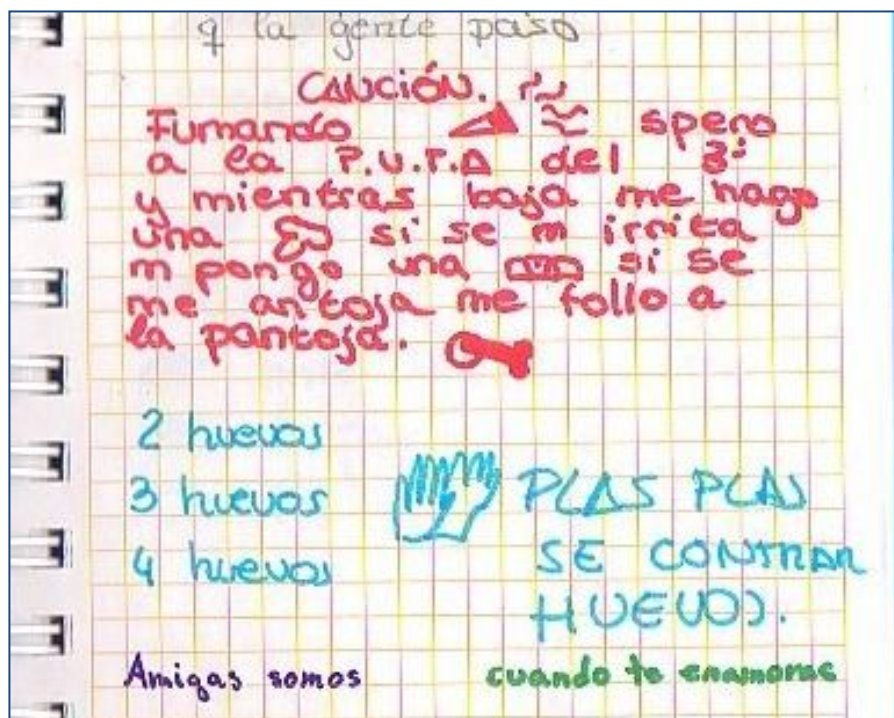 q la gente paso
CANCIÓN.
Fumando spero
a la P.U.T.A del 3º
y mientras baja me hago
una si se m irrita
m pongo una si se
me antoja me follo a
la pantoja.
2 huevos
3 huevos
4 huevos
PLAS PLAS
SE CONTRAR
HUEVOS.
Amigas somos
cuando te enamores